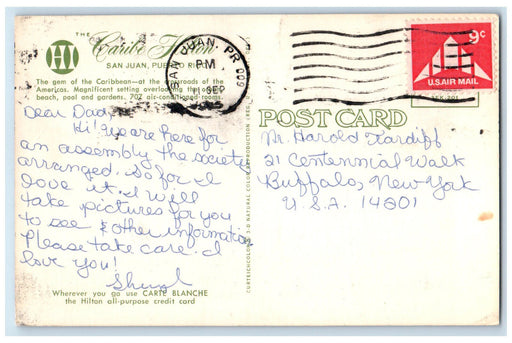 THE
Caribe Hilton
SAN JUAN, PUERTO RICO
The gem of the Caribbean—at the crossroads of the
Americas. Magnificent setting overlooking the
beach, pool and gardens. 702 air-conditioned rooms.
SAN JUAN, PR 009
PM
11 SEP
9¢
U.S. AIR MAIL
POST CARD
Dear Dad,
Hi! We are here for
an assembly the society
arranged. So far I
love it. I will
take pictures for you
to see & other information.
Please take care. I
love you!
Sheryl
Mr. Harold Kardiff
21 Centennial Walk
Buffalo, New York
U.S.A. 14201
Wherever you go use CARTE BLANCHE
the Hilton all-purpose credit card
CURTEICHCOLOR® 3-D NATURAL COLOR REPRODUCTION